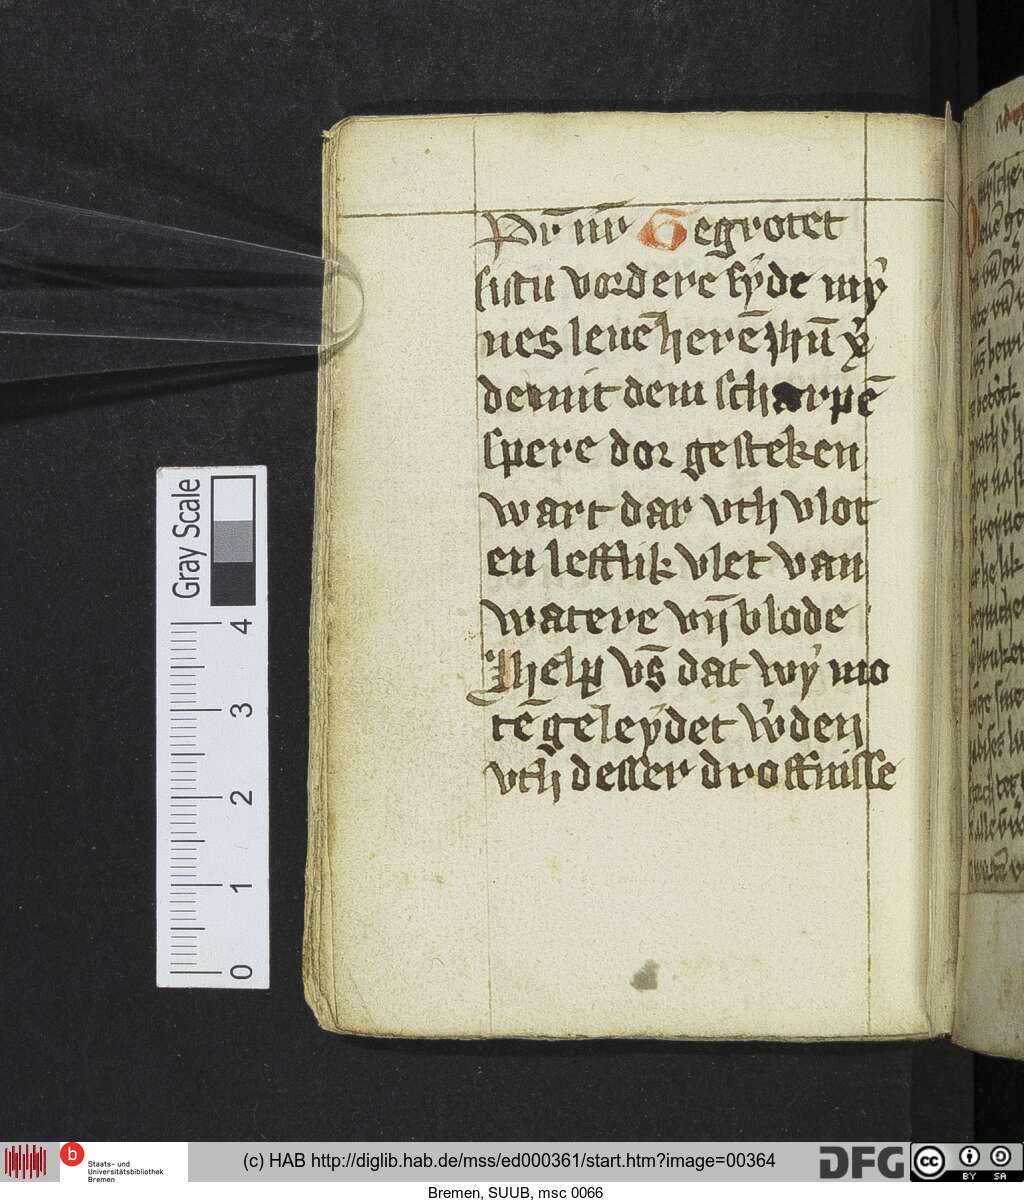 Pr̄ nr̄ Gegrotet
sistu vordere sÿde mÿ
nes leuē herē ihū x̄
de mit dem scharpē
spere dor gesteken
wart dar vth vlot
en lefflik vlet van
watere vn̄ blode
Ihelp vs̄ dat wÿ mo
tē geleÿdet w̓den
vth desser droffnisse
Gray Scale
4
3
2
1
0
b Staats- und
Universitätsbibliothek
Bremen
(c) HAB http://diglib.hab.de/mss/ed000361/start.htm?image=00364
DFG
cc BY SA
Bremen, SUUB, msc 0066